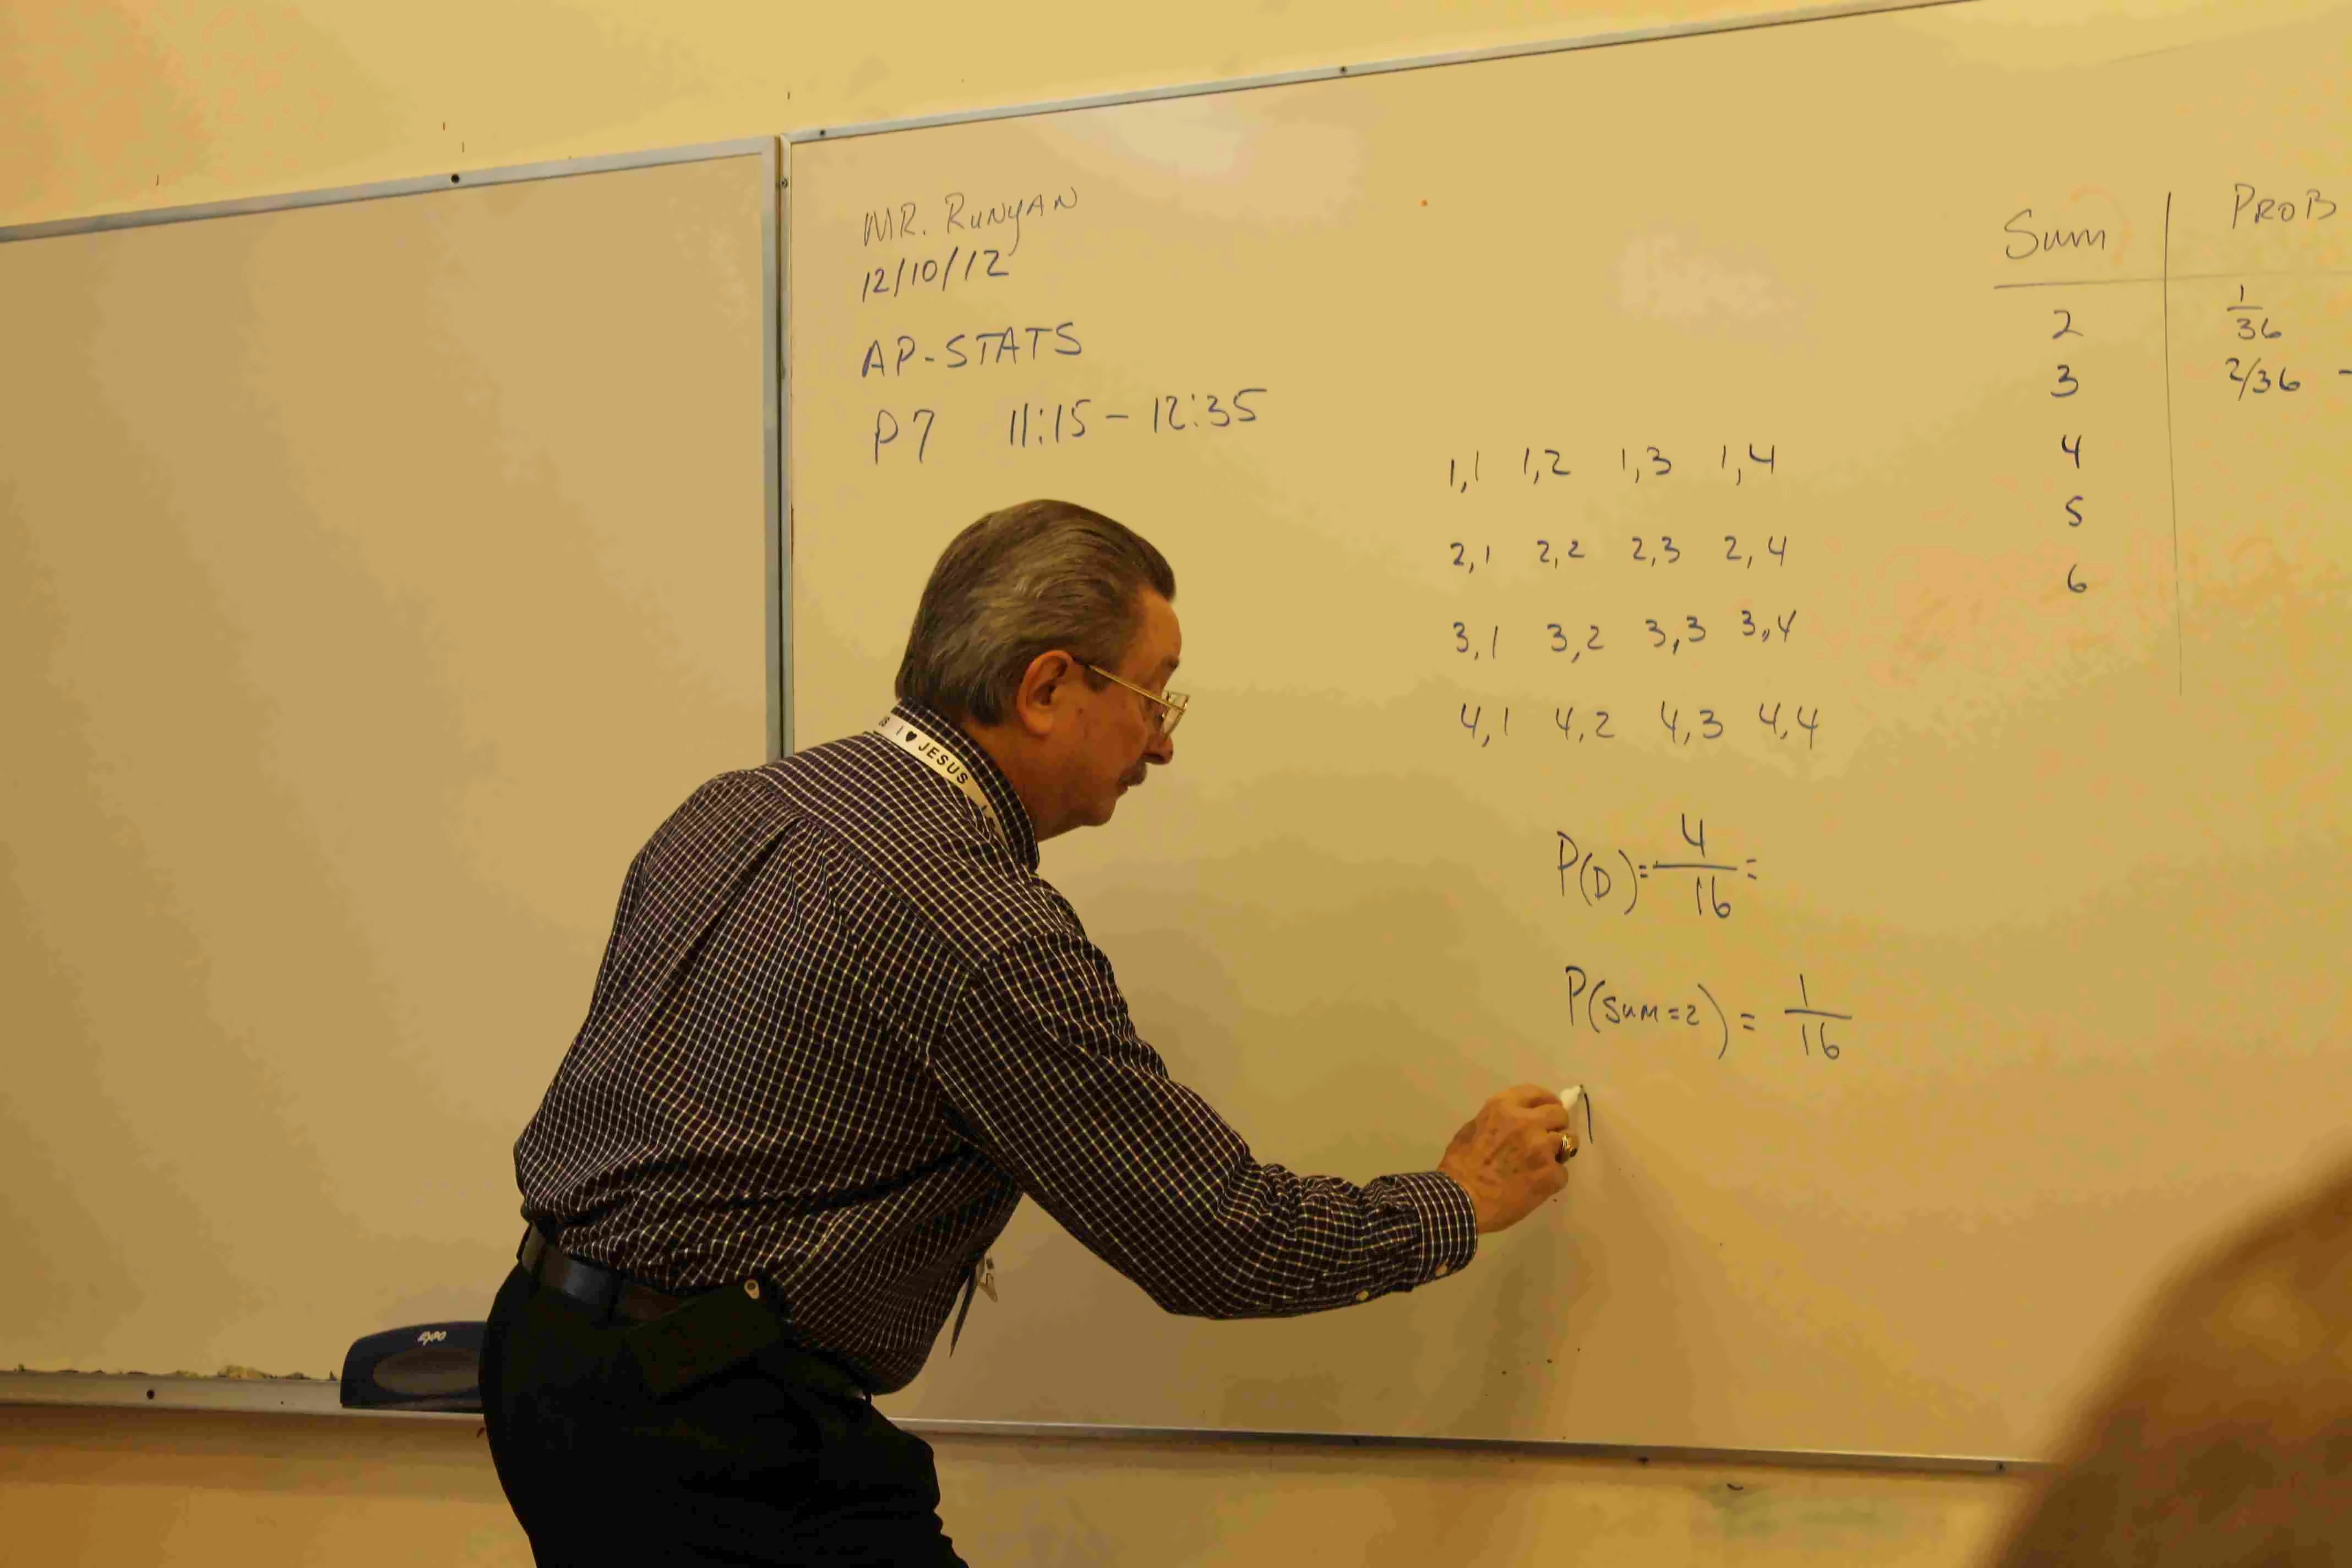 MR. RUNYAN
12/10/12
AP-STATS
P7 11:15-12:35
1,1 1,2 1,3 1,4
2,1 2,2 2,3 2,4
3,1 3,2 3,3 3,4
4,1 4,2 4,3 4,4
P(D)=4/16=
P(SUM=2)=1/16
Sum PROB
2 1/36
3 2/36 -
4
5
6
US I ♥ JESUS I
EXPO